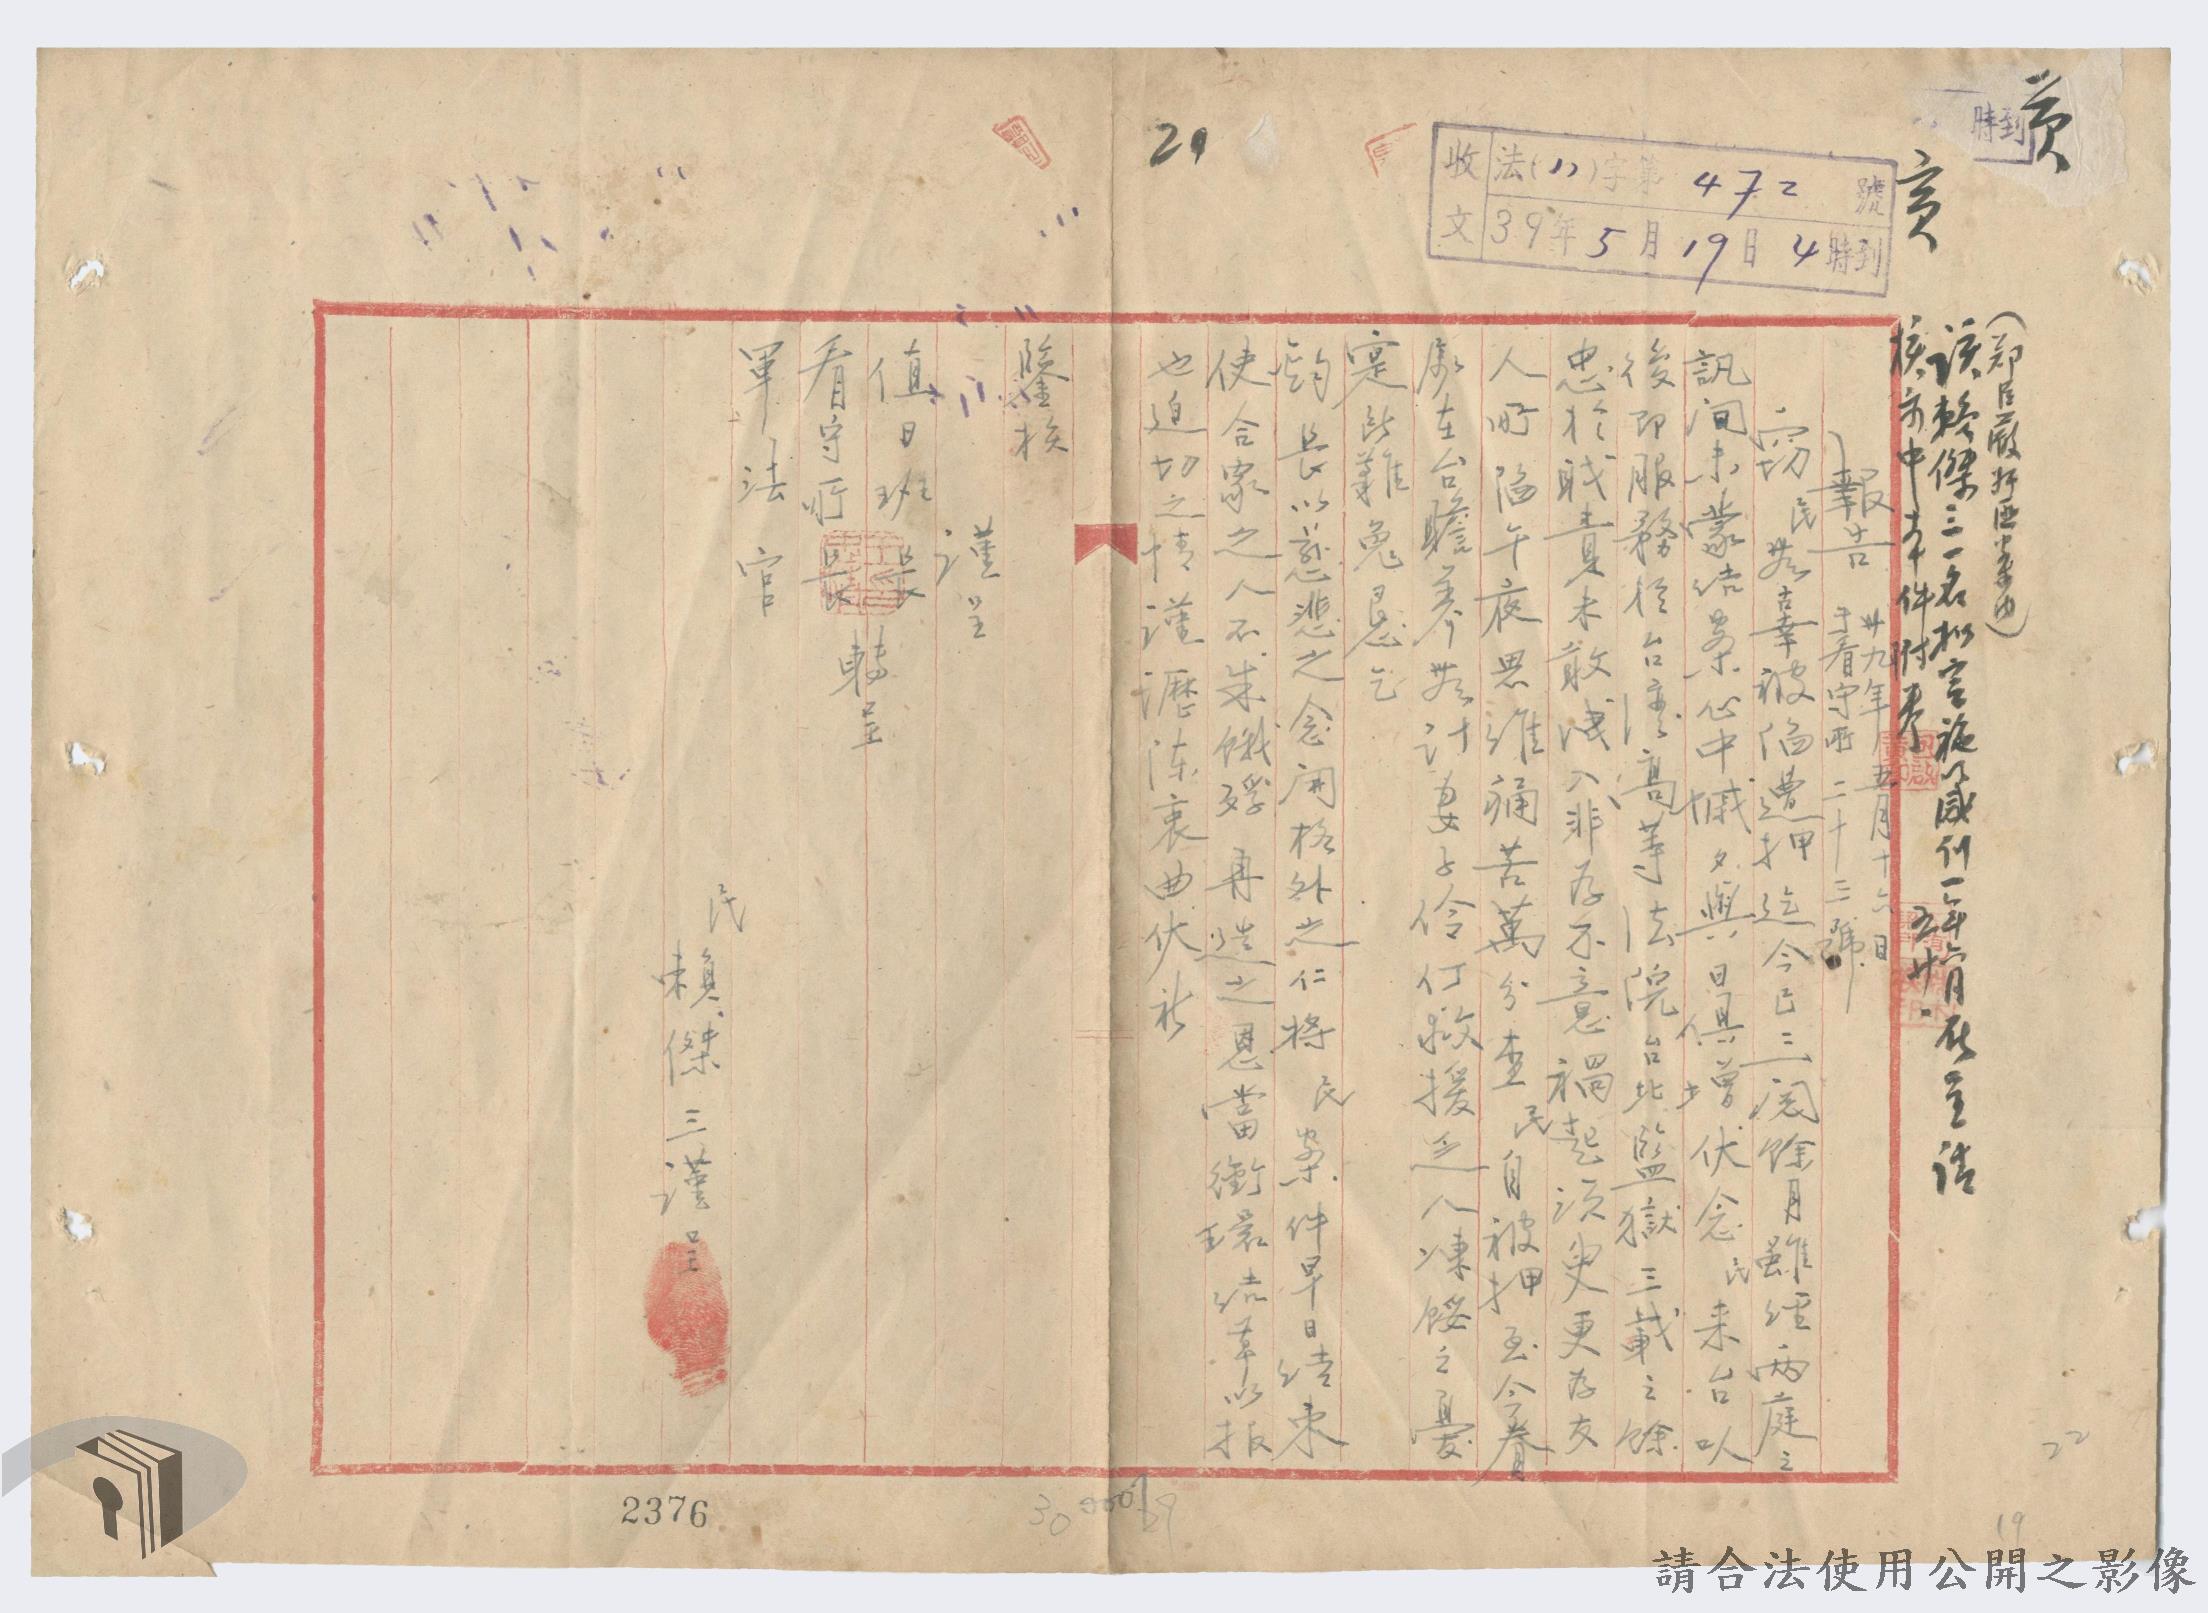 黃
時到
收文
法(1)字第472號
39年5月19日4時到
29
該賴傑三一名擬言施以感訓一年六月
核示中本件附卷
五廿
報告
卅九年五月十六日
于看守所二十三號
竊民無辜被陷遭押迄今已三閱餘月雖經兩庭之
訊問未蒙結案心中慽夕與日俱增伏念民来台以
後即服務於台灣高等法院台北監獄三載之餘
忠於職責未敢涉入非為不意禍起須臾更為友
人所陷午夜思維痛苦萬分查民自被押至今眷
屬在台贍养無計妻子伶仃救援乏人凍餒之憂
寔所難免恳乞
鈞長以慈悲之念開格外之仁將民案件早日结束
使合家之人不成餓殍再造之恩當銜環结草以报
也迫切之情謹瀝陳衷曲伏祈
鑒核
謹呈
值日班長
看守所長 轉呈
軍法官
民
賴傑三謹呈
2376
22
19
請合法使用公開之影像